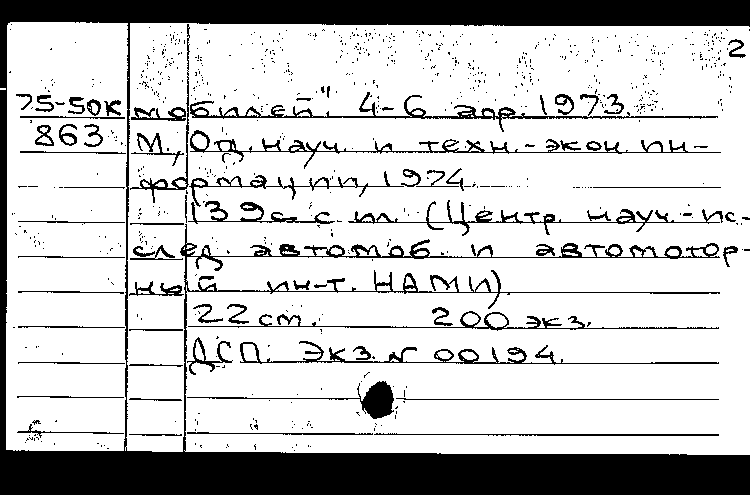 2
75-50к мобилей". 4-6 апр. 1973.
863 М., Од. науч. и техн.-экон. ин-
формации, 1974.
139с. с ил. (Центр. науч.-ис-
след. автомоб. и автомотор-
ный ин-т. НАМИ).
22 см. 200 экз.
ДСП. Экз. № 00194.